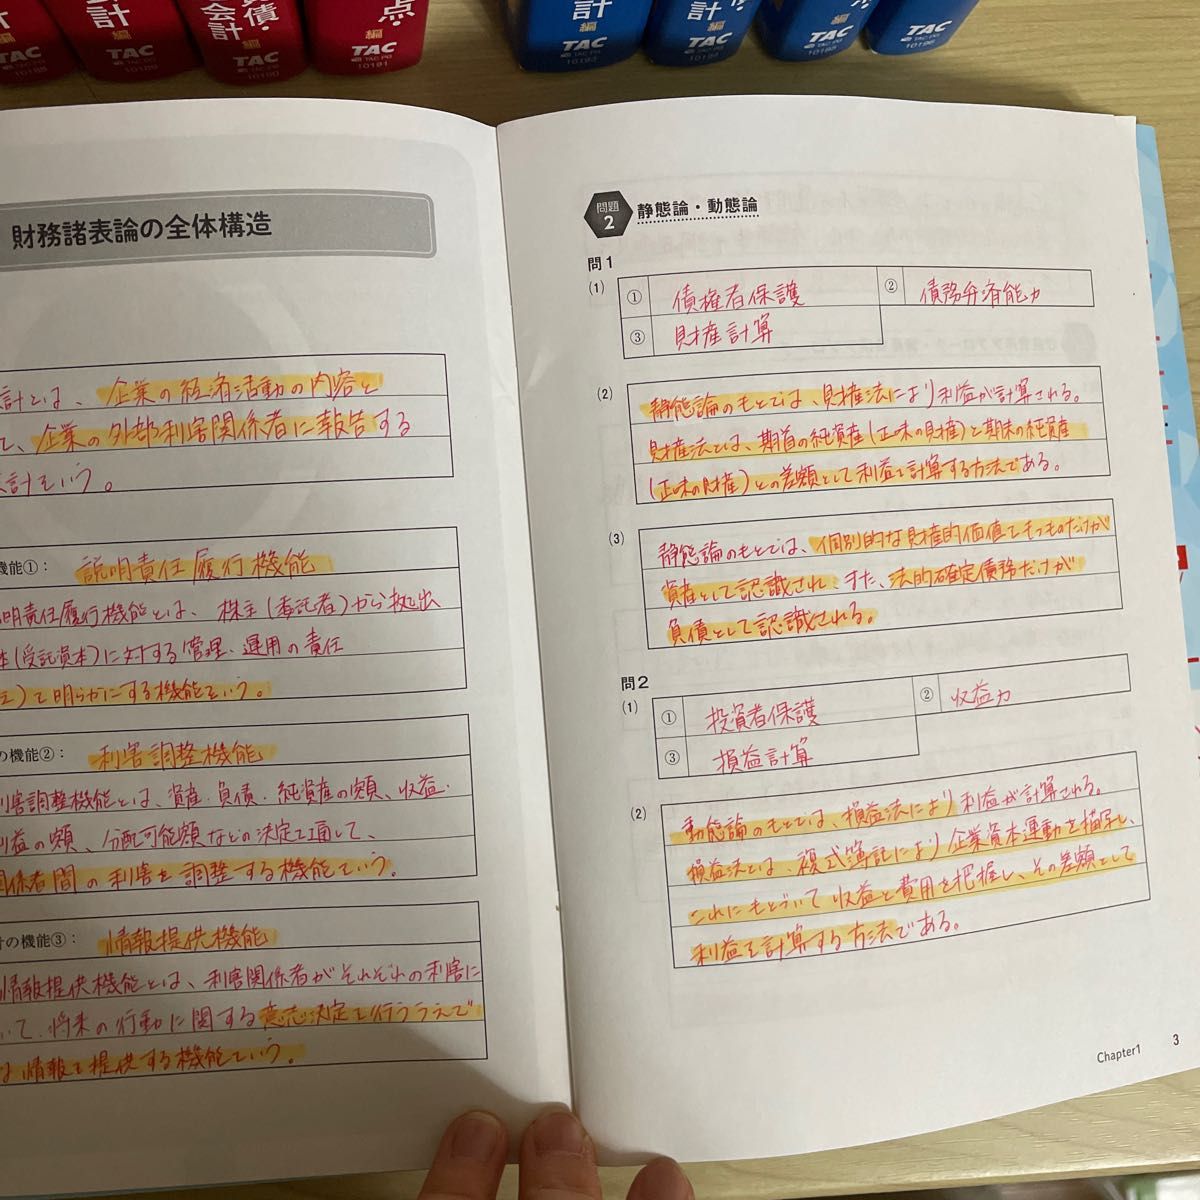 計
編
TAC
TAC PG
10189
債・
会計
編
TAC
TAC PG
10190
点・
編
TAC
TAC PG
10191
計
編
TAC
TAC PG
計
編
TAC
TAC PG
点・
編
TAC
TAC PG
TAC
TAC PG
財務諸表論の全体構造
計とは、企業の経済活動の内容と
て、企業の外部利害関係者に報告する
計という。
機能①： 説明責任履行機能
明責任履行機能とは、株主(委託者)から拠出
本(受託資本)に対する管理・運用の責任
を明らかにする機能という。
の機能②： 利害調整機能
利害調整機能とは、資産・負債・純資産の額、収益・
益の額、分配可能額などの決定を通して、
関係者間の利害を調整する機能という。
計の機能③： 情報提供機能
情報提供機能とは、利害関係者がそれぞれの利害に
いて、将来の行動に関する意思決定を行ううえで
な情報を提供する機能という。
問題
2
静態論・動態論
問1
(1) ① 債権者保護 ② 債務弁済能力
③ 財産計算
(2) 静態論のもとでは、財産法により利益が計算される。
財産法とは、期首の純資産(正味の財産)と期末の純資産
(正味の財産)との差額として利益を計算する方法である。
(3) 静態論のもとでは、個別的な財産的価値をもつものだけが
資産として認識され、また、法的確定債務だけが
負債として認識される。
問2
(1) ① 投資者保護 ② 収益力
③ 損益計算
(2) 動態論のもとでは、損益法により利益が計算される。
損益法とは、複式簿記により企業資本運動を描写し、
これにもとづいて収益と費用を把握し、その差額として
利益を計算する方法である。
Chapter1 3